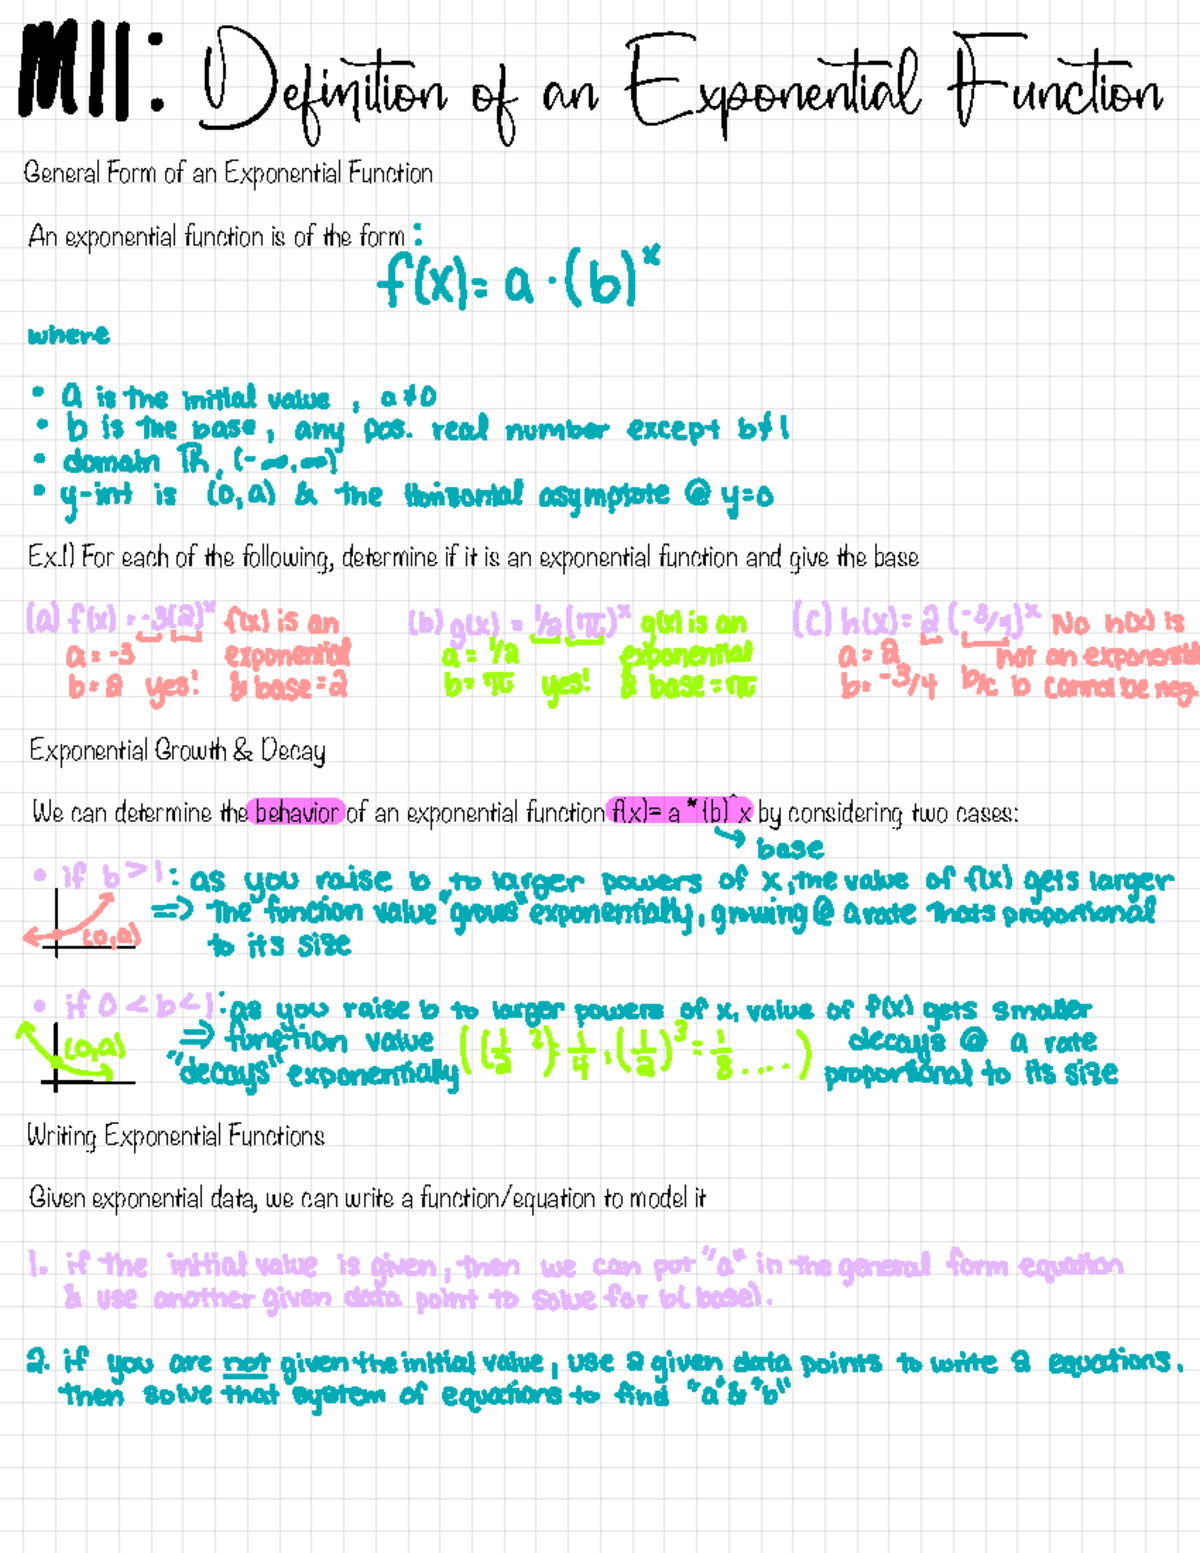 M11: Definition of an Exponential Function
General Form of an Exponential Function
An exponential function is of the form :
f(x)= a · (b)^x
where
• a is the initial value , a≠0
• b is the base, any pos. real number except b≠1
• domain ℝ, (-∞,∞)
• y-int is (0,a) & the Horizontal asymptote @ y=0
Ex.1) For each of the following, determine if it is an exponential function and give the base
(a) f(x) = -3(2)^x f(x) is an
a = -3 exponential
b = 2 yes! & base = 2
(b) g(x) = 1/2(π)^x g(x) is an
a = 1/2 exponential
b = π yes! & base = π
(c) h(x) = 2(-3/4)^x No h(x) is
a = 2 not an exponential
b = -3/4 b/c b cannot be neg.
Exponential Growth & Decay
We can determine the behavior of an exponential function f(x)= a * (b)^x by considering two cases:
base
• if b > 1: as you raise b to larger powers of x, the value of f(x) gets larger
⇒ the function value "grows" exponentially, growing @ a rate thats proportional
(0,a)
to its size
• if 0 < b < 1: as you raise b to larger powers of x, value of f(x) gets smaller
(0,a)
⇒ function value ((1/2)^2 = 1/4, (1/2)^3 = 1/8 ....) decays @ a rate
"decays" exponentially proportional to its size
Writing Exponential Functions
Given exponential data, we can write a function/equation to model it
1. if the initial value is given, then we can put "a" in the general form equation
& use another given data point to solve for b( base).
2. if you are not given the initial value, use 2 given data points to write 2 equations.
then solve that system of equations to find "a" & "b"